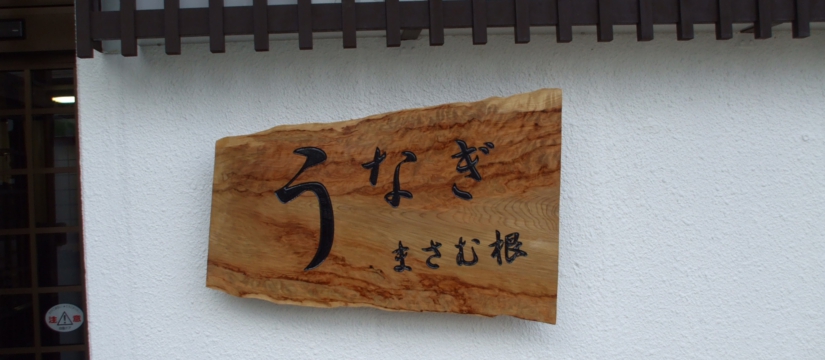 うなぎ
まさむ根
注意